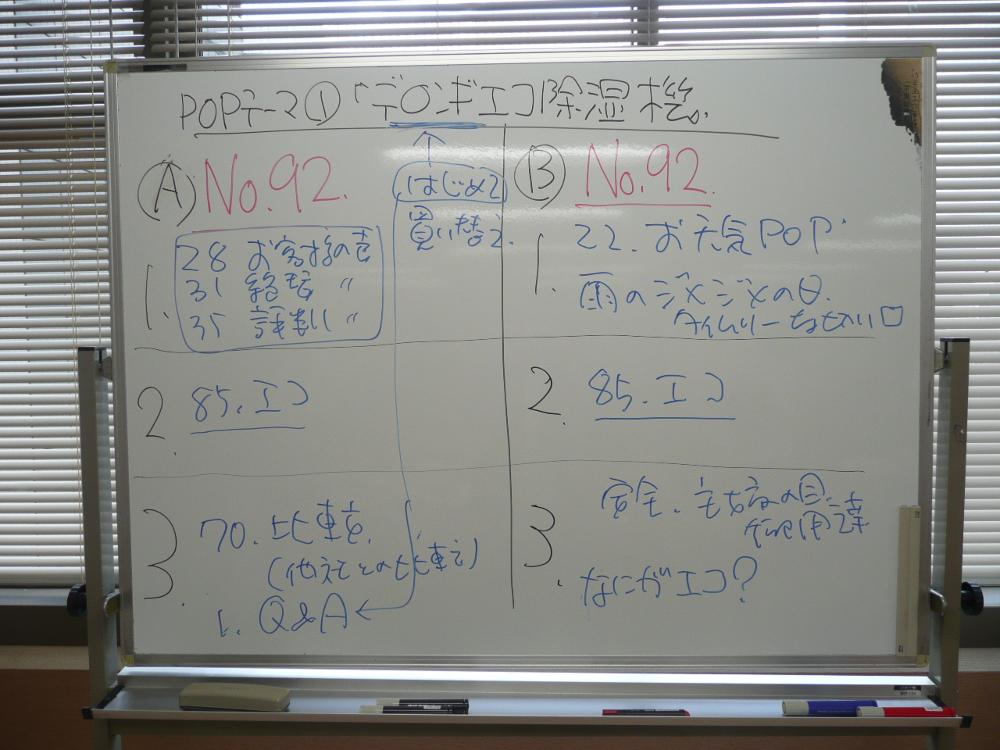 POPテーマ① 「デロンギエコ除湿機」
Ⓐ No.92.
はじめて
買い替え.
1. 28 お客様の声
31 経営 〃
35 評判 〃
2. 85. エコ
3. 70. 比較.
(他社との比較)
1. Q&A
Ⓑ No.92.
1. 22. お天気POP
雨のジメジメの日.
タイムリー
2. 85. エコ
3. 安全.
なにがエコ?